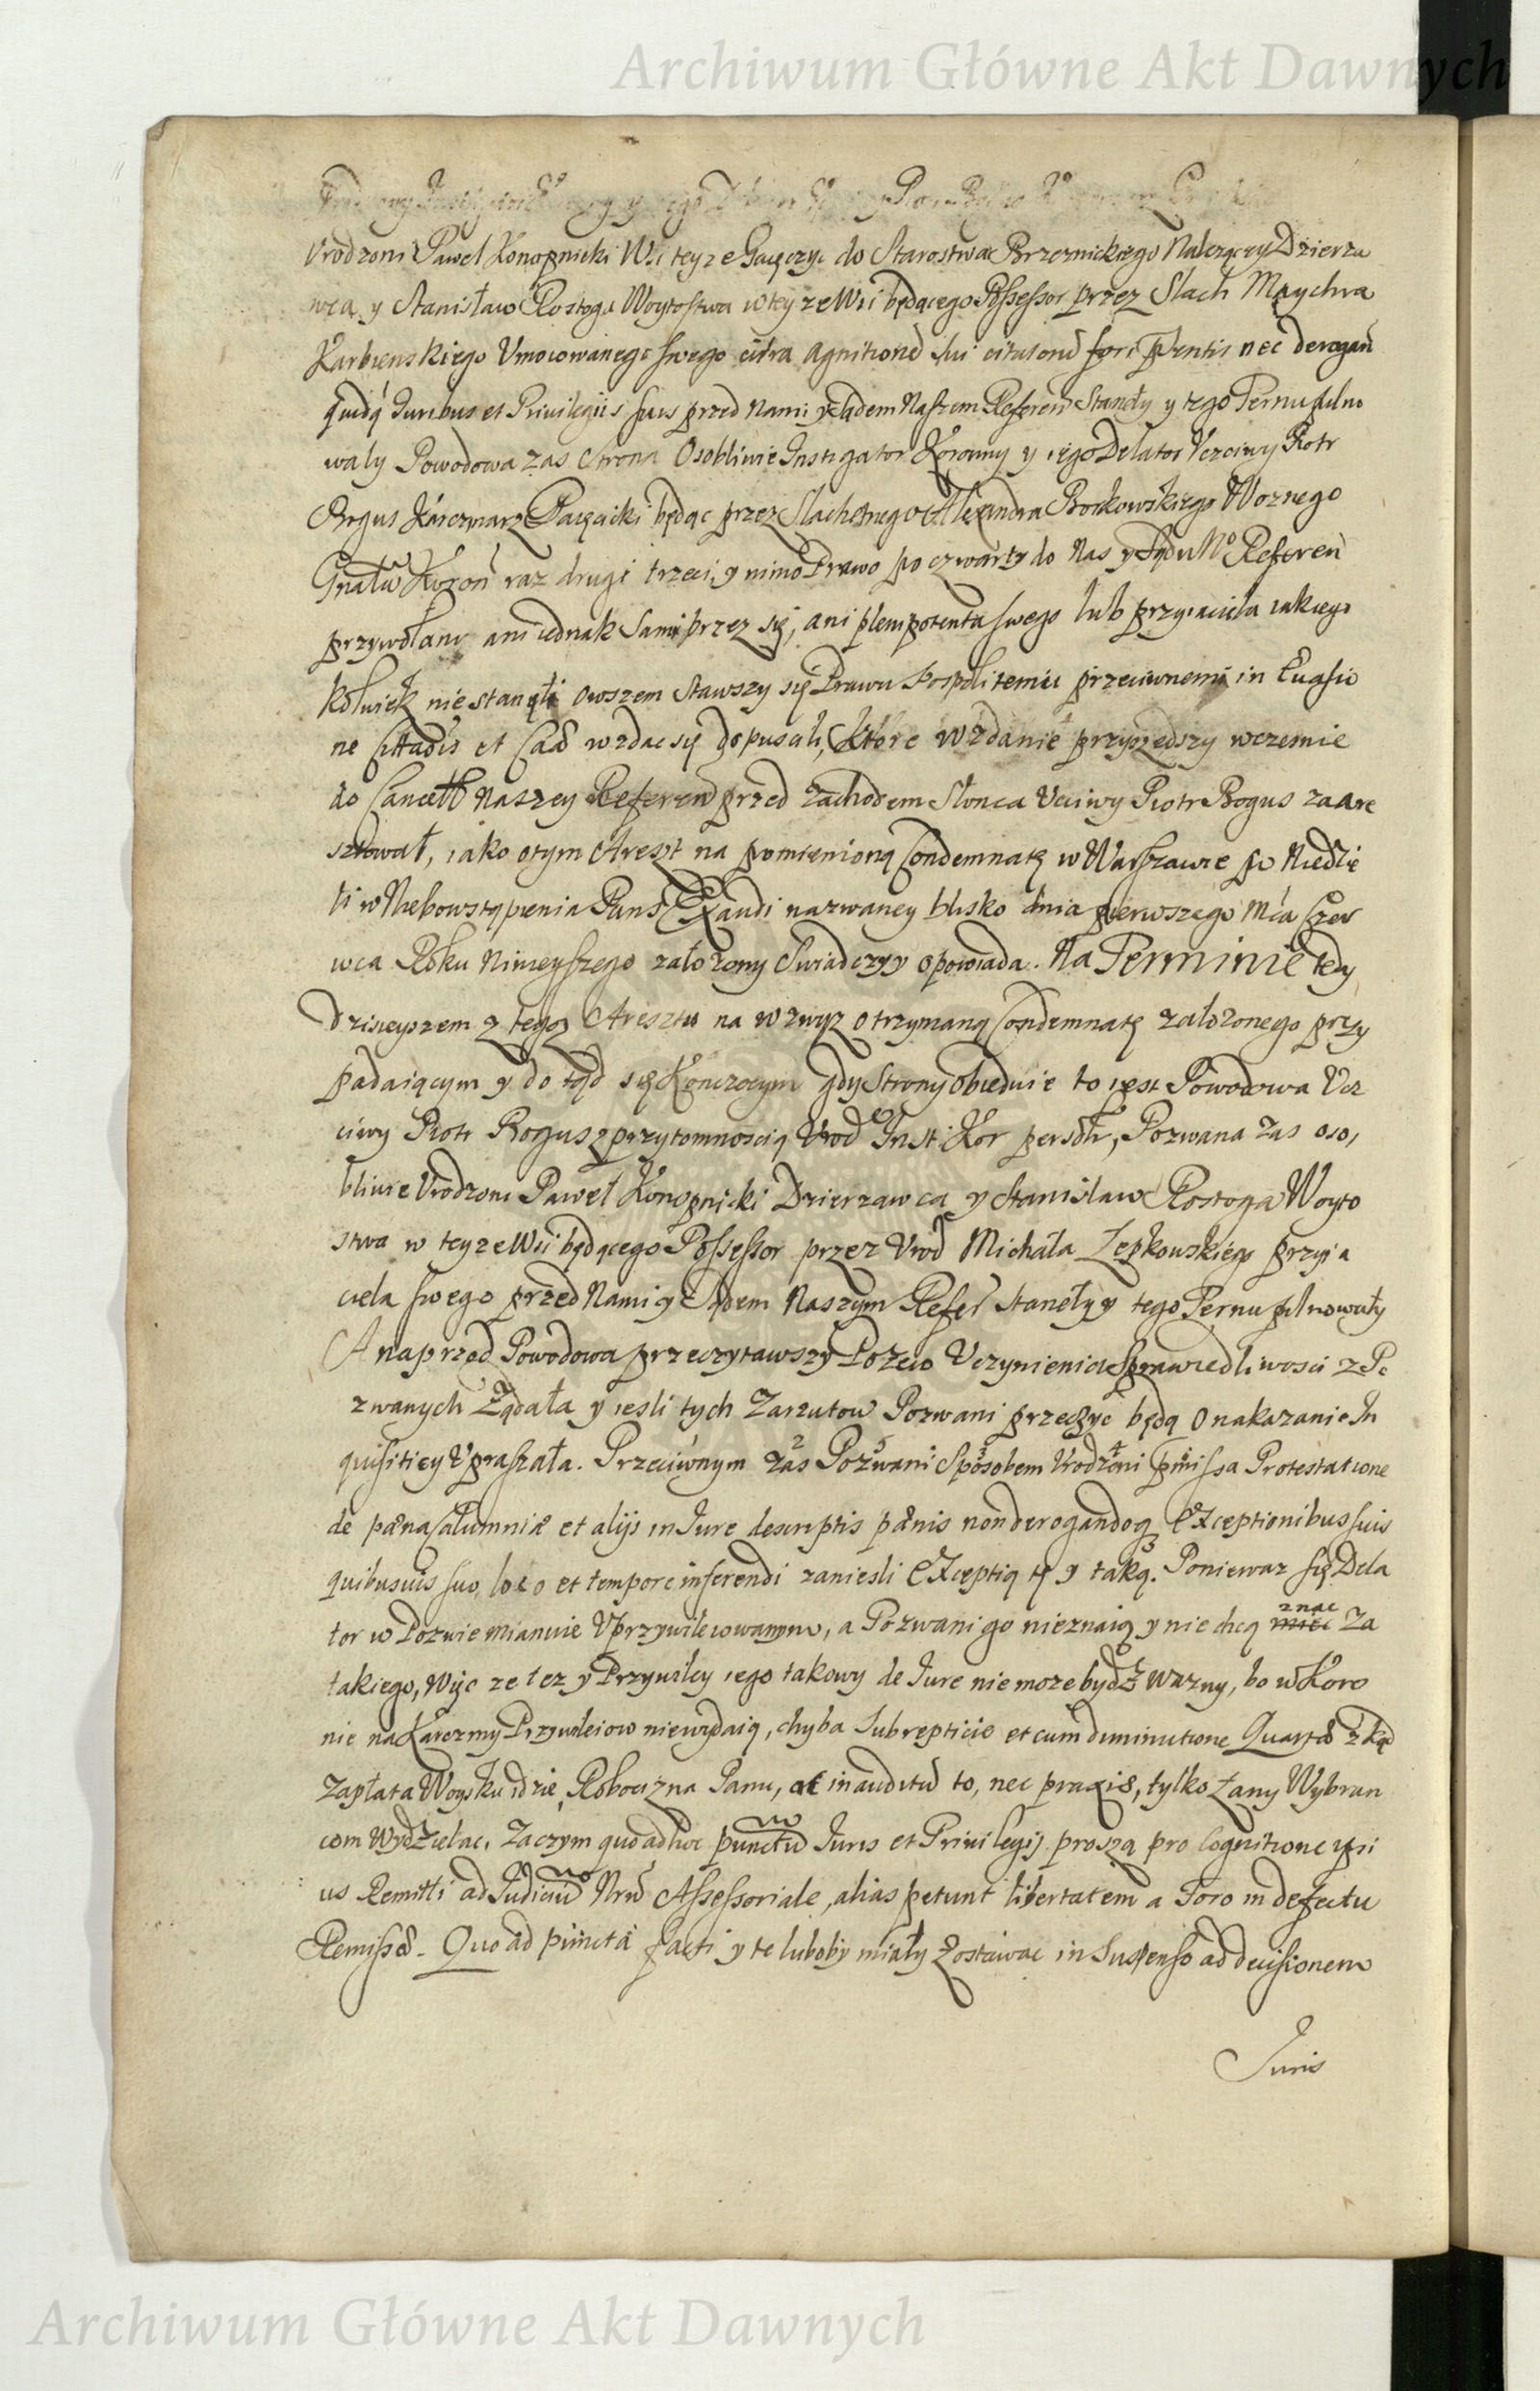 Archiwum Główne Akt Dawnych
Vrodzoni Paweł Konopnicki Wsi teyze Gaęczyc do Starostwa Brzeznickiego Nalezącey Dzierza
wca y Stanisław Rostoga Woytostwa w teyze Wsi będącego Possessor przez Slach Maychra
Karbienskiego Vmocowanego swego citra agnitione sui citatorie fori pntis nec derogan
quidq Iuribus et Priuilegiis suis przed Nami y Sądem Naszem Referen Stanęły y tego Ternu pilno
wały Powodowa zas Strona Osobliwie Instigator Koronny y iego Delator Vczciwy Piotr
Bogus Karczmarz Pacęcicki będąc przez Slachetnego Alexandra Borkowskiego Woznego
Gnału Koron raz drugi trzeci y mimo Prawo po czwarty do Nas y Sądu No Referen
przywołani ani iednak Sami przez się, ani plenipotenta swego lub przyiaciela iakiego
kolwiek nie stanęli owszem stawszy się Prawu Pospolitemu przeciwnemi in Euasio
ne Cittaōis et Caō wzdac się dopuscili, Ktore wzdanie przyszedszy wczesnie
do Cancell Naszey Referen przed Zachodem Słonca Vcciwy Piotr Bogus zaare
sztował, iako o tym Areszt na pomienioną Condemnatę w Warszawie po Niedzie
li w Niebowstąpienia Pans Exaudi nazwaney blisko dnia pierwszego Mca Czer
wca Roku Ninieyszego załozony Swiadczy y opowiada. Na Terminie tedy
dzisieyszem z tegoz Aresztu na wzwyz otrzymaną Condemnatę załozonego przy
padaiącym y do tąd się Konczącym gdy Strony obiedwie to iest Powodowa Vcz
ciwy Piotr Bogus z przytomnoscią Vrod Insti Kor persolr, Pozwana zas oso,
bliwie Vrodzoni Paweł Konopnicki Dzierzawca y Stanisław Rostoga Woyto
stwa w teyze Wsi będącego Possessor przez Vrod Michała Zepkowskiego przyia
ciela swego przed Nami y Sądem Naszym Refer Stanęły y tego Ternu pilnowały
A naprzod Powodowa przeczytawszy Pozew Vczynienia Sprawiedliwosci z Po
zwanych Ządała y iesli tych Zarzutow Pozwani przeczyc będą o nakazanie In
quisitiey Vpraszała. Przeciwnym 2 zas 5 Pozwani 3 Sposobem 4 Vrodzoni pmissa Protestatione
de pæna Calumniæ et alijs in Iure descriptis pænis non derogandoq Exceptionibus suis
quibusuis suo loco et tempore inferendi zaniesli Exceptią tę y taką. Poniewaz się Dela
tor w Pozwie mianuie Vprzywilewanym, a Pozwani go nieznaią y nie chcą miec znac za
takiego, Więc ze tez y Przywiley iego takowy de Iure nie moze bydz wazny, bo w Koro
nie na Karczmy Przywileiow niewydaią, chyba subrepticie et cum diminutione Quartæ zkąd
zapłata Woysku idzie, Robocizna Panu, at inauditū to, nec praxis, tylko łany Wybran
com Wydzielac, Zaczym quo ad hoc punctū Iuris et Priuilegij proszą pro Cognitione ipsi
us Remitti ad Iudiciū Nrū Assessoriale, alias petunt libertatem a Foro in defectu
Remissæ. Quo ad puncta facti y te luboby miały zostawac in Suspenso ad decisionem
Iuris
Archiwum Główne Akt Dawnych